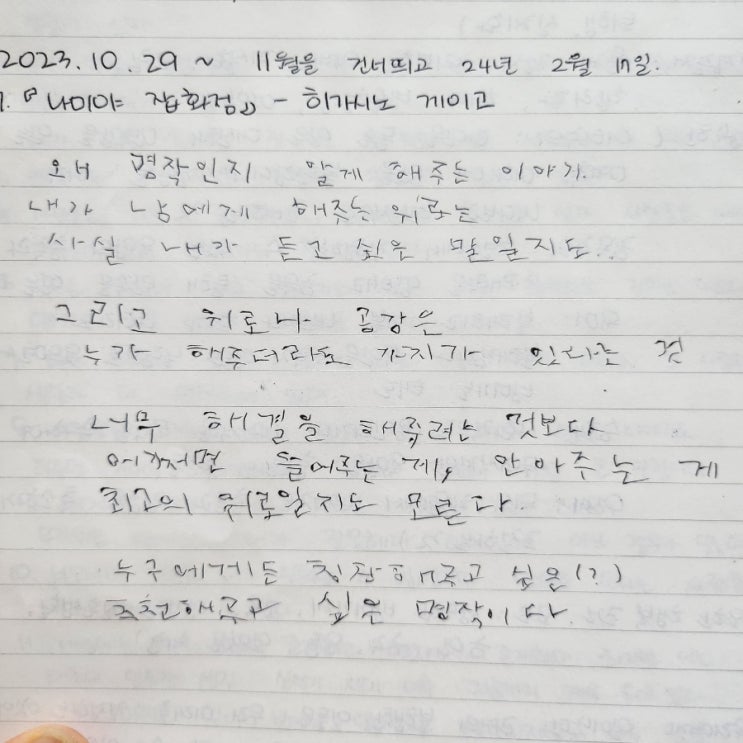 2023.10.29 ~ 11월을 건너띄고 24년 2월 17일.
1. 『나미야 잡화점』 - 히가시노 게이고
왜 명작인지 알게 해주는 이야기.
내가 남에게 해주는 위로는
사실 내가 듣고 싶은 말일지도..
그리고 위로나 공감은
누가 해주더라도 가치가 있다는 것
너무 해결을 해주려는 것보다
어쩌면 들어주는 게, 안아주는 게
최고의 위로일지도 모른다.
누구에게든 칭찬해주고 싶은(?)
추천해주고 싶은 명작이다.